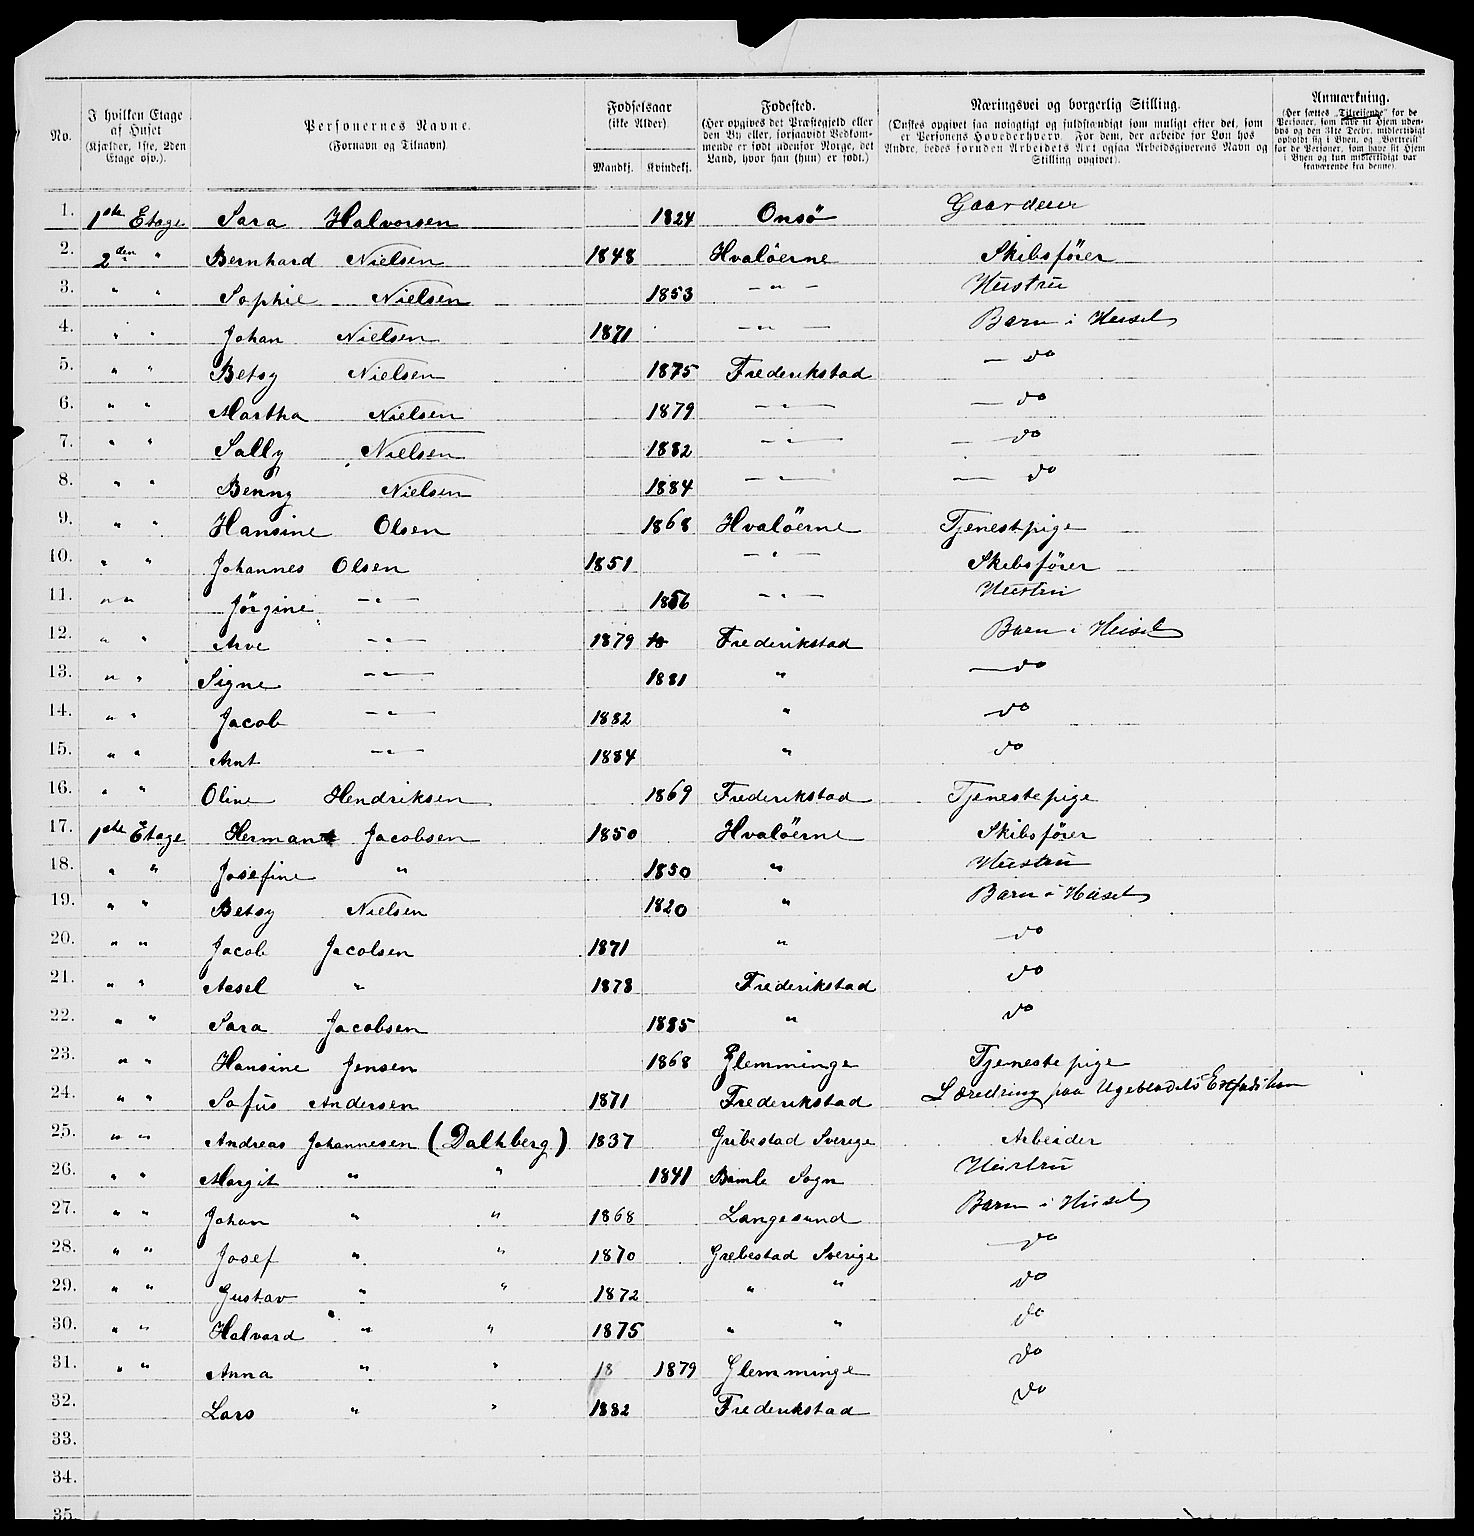 No. | I hvilken Etage af Huset (Kjælder, 1ste, 2den Etage osv.). | Personernes Navne. (Fornavn og Tilnavn) | Fødselsaar (ikke Alder) Mandkj. | Kvindekj. | Fødested. (Her opgives det Præstegjeld eller den By eller, forsaavidt Vedkommende er født udenfor Norge, det Land, hvor han (hun) er født.) | Næringsvei og borgerlig Stilling. (Ønskes opgivet saa nøiagtigt og fuldstændigt som muligt efter det, som er Personens Hovederhverv. For dem, der arbeide for Løn hos Andre, bedes foruden Arbeidets Art ogsaa Arbeidsgiverens Navn og Stilling opgivet). | Anmærkning. (Her sættes „Tilreisende" for de Personer, som have sit Hjem udenbys og den 31te Decbr. midlertidigt opholdt sig i Byen, og „Bortreist" for de Personer, som have sit Hjem i Byen og kun midlertidigt var fraværende fra denne).
1. 1ste Etage Sara Halvorsen 1824 Onsö Gaardeier
2. 2den " Bernhard Nielsen 1848 Hvalöerne Skibsfører
3. " " Sophie Nielsen 1853 — " — Hustru
4. " " Johan Nielsen 1871 — " — Barn i Huset
5. " " Betsy Nielsen 1875 Frederikstad — do
6. " " Martha Nielsen 1879 — " — — do
7. " " Sally Nielsen 1882 — " — — do
8. " " Benny Nielsen 1884 — " — — do
9. " " Hansine Olsen 1868 Hvalöerne Tjenestpige
10. " " Johannes Olsen 1851 — " — Skibsfører
11. " " Jörgine — " — 1856 — " — Hustru
12. " " Arve — " — 1879 18 Frederikstad Barn i Huset
13. " " Signe — " — 1881 " — do
14. " " Jacob — " — 1882 " — do
15. " " Arnt — " — 1884 " do
16. " " Oline Hendriksen 1869 Frederikstad Tjenestepige
17. 1ste Etage Herman Jacobsen 1850 Hvalöerne Skibsfører
18. " " Josefine " 1850 " Hustru
19. " " Betsy Nielsen 1820 " Barn i Huset
20. " " Jacob Jacobsen 1871 " — do
21. " " Axsel " 1878 Frederikstad do
22. " " Sara Jacobsen 1885 " do
23. " " Hansine Jensen 1868 Glemminge Tjenestepige
24. " " Sofus Andersen 1871 Frederikstad Læredring paa Ugebladets Expedition
25. " " Andreas Johannesen (Dalhberg) 1837 Gribestad Sverige Arbeider
26. " " Margit " " 1841 Bamle Sogn Hustru
27. " " Johan " " 1868 Langesund Barn i Huset
28. " " Josef " " 1870 Grebestad Sverige — do
29. " " Gustav " " 1872 " " do
30. " " Halvard " " 1875 " " do
31. " " Anna " " 18 1879 Glemminge do
32. Lars " " 1882 Frederikstad do
33.
34.
35.